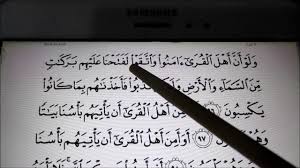 وَلَوْ أَنَّ أَهْلَ الْقُرَىٰ ءَامَنُوا وَاتَّقَوْا لَفَتَحْنَا عَلَيْهِم بَرَكَٰتٍ
مِّنَ السَّمَاءِ وَالْأَرْضِ كَذَّبُوا فَأَخَذْنَٰهُم بِمَا كَانُوا
يَكْسِبُونَ أَهْلُ الْقُرَىٰ أَن يَأْتِيَهُم بَأْسُنَا بَيَٰتًا
وَهُمْ ٩٧ أَوَأَمِنَ أَهْلُ الْقُرَىٰ أَن يَأْتِيَهُم بَأْسُنَا